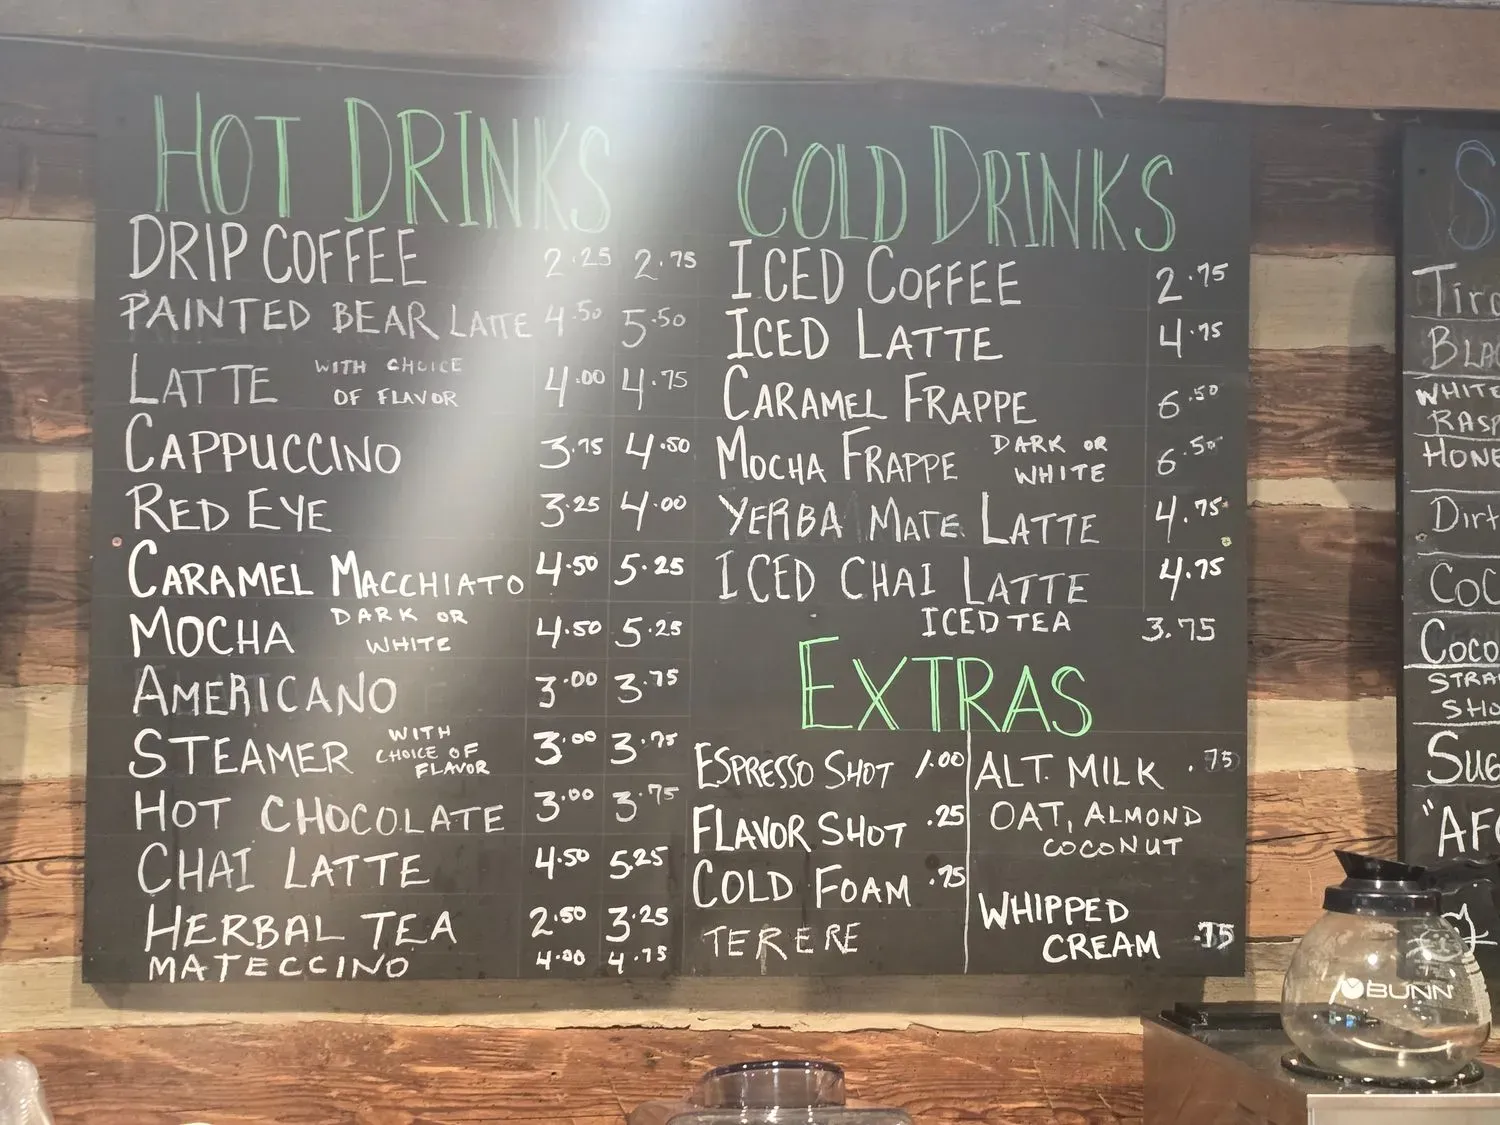 HOT DRINKS
DRIP COFFEE 2.25 2.75
PAINTED BEAR LATTE 4.50 5.50
LATTE WITH CHOICE OF FLAVOR 4.00 4.75
CAPPUCCINO 3.75 4.50
RED EYE 3.25 4.00
CARAMEL MACCHIATO 4.50 5.25
MOCHA DARK OR WHITE 4.50 5.25
AMERICANO 3.00 3.75
STEAMER WITH CHOICE OF FLAVOR 3.00 3.75
HOT CHOCOLATE 3.00 3.75
CHAI LATTE 4.50 5.25
HERBAL TEA 2.50 3.25
MATECCINO 4.00 4.75
COLD DRINKS
ICED COFFEE 2.75
ICED LATTE 4.75
CARAMEL FRAPPE 6.50
MOCHA FRAPPE DARK OR WHITE 6.50
YERBA MATE LATTE 4.75
ICED CHAI LATTE 4.75
ICED TEA 3.75
EXTRAS
ESPRESSO SHOT 1.00
FLAVOR SHOT .25
COLD FOAM .75
TERERE
ALT. MILK .75
OAT, ALMOND
COCONUT
WHIPPED
CREAM .75
S
Tira
BLA
WHITE
RASP
HONE
Dirt
COC
Coco
STRA
SHO
SUG
"AFO
BUNN